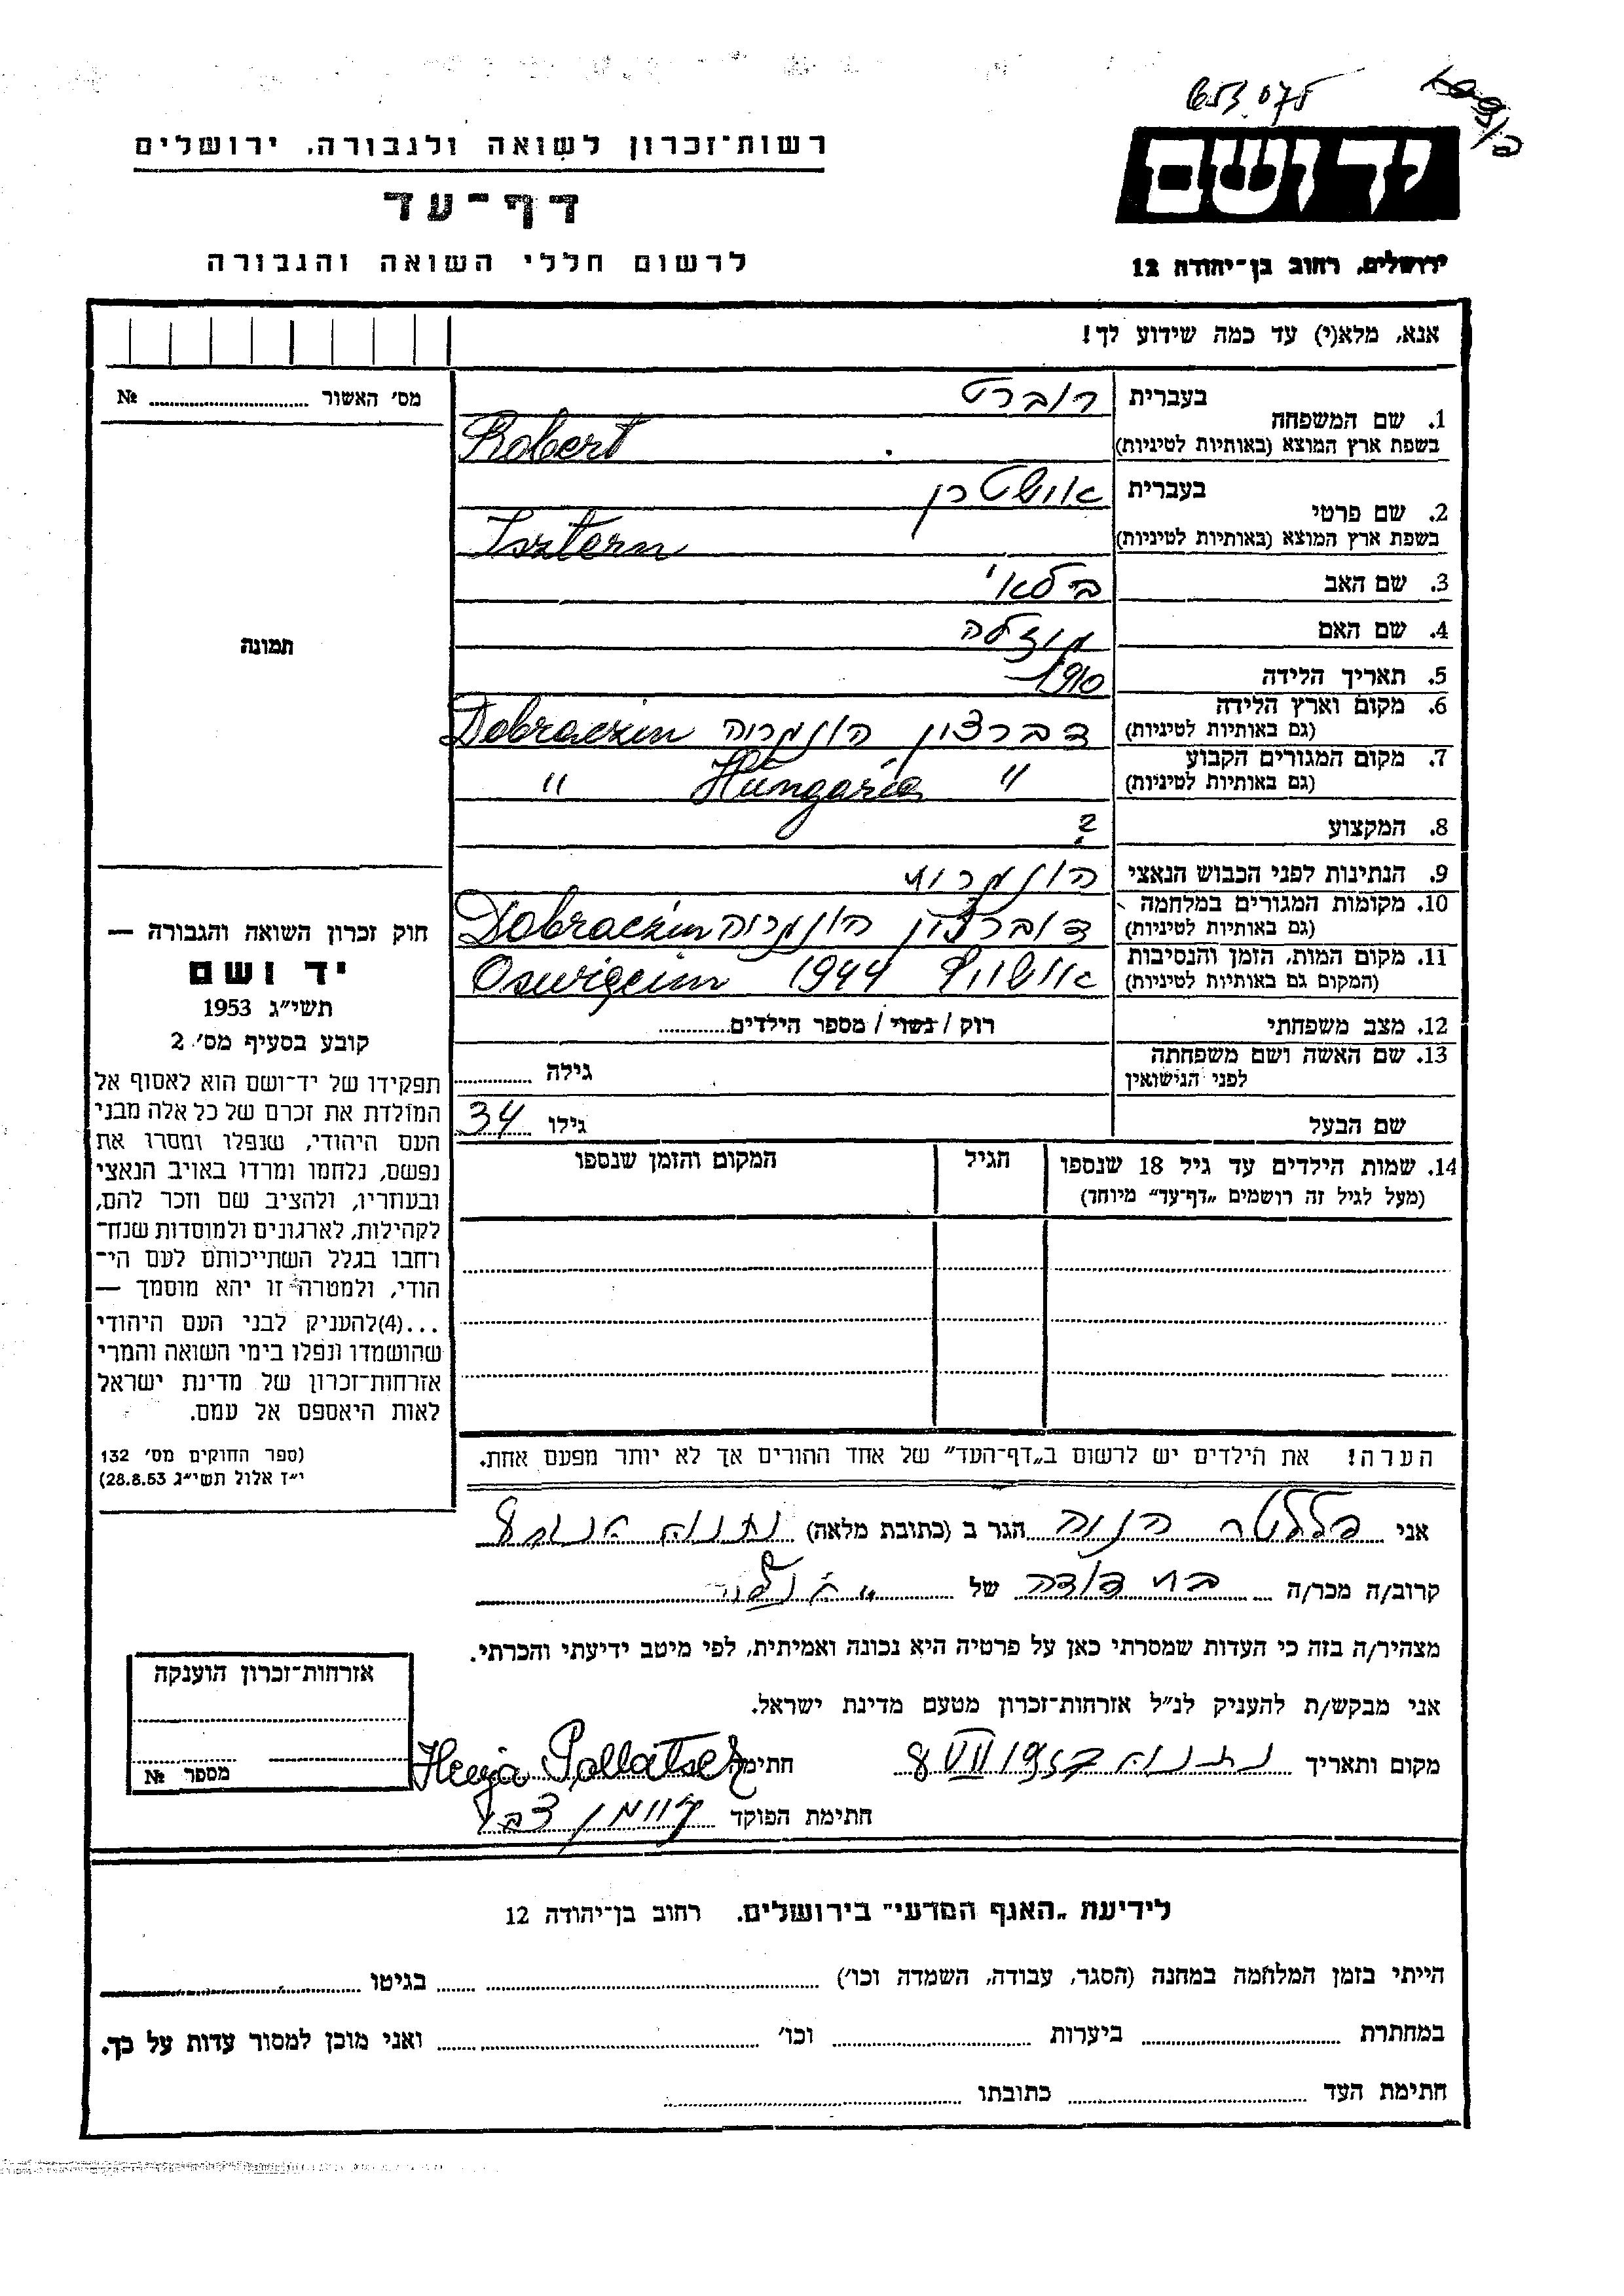 653.075
רשות־זכרון לשואה ולגבורה, ירושלים
יד ושם
דף־עד
לרשום חללי השואה והגבורה
ירושלים, רחוב בן־יהודה 12
אנא, מלא(י) עד כמה שידוע לך!
מס׳ האשור № 
1. שם המשפחה
בעברית רוברט
בשפת ארץ המוצא (באותיות לטיניות) Robert
2. שם פרטי
בעברית אושטרן
בשפת ארץ המוצא (באותיות לטיניות) Isztern
3. שם האב
4. שם האם
5. תאריך הלידה 1910
6. מקום וארץ הלידה דברצין הונגריה Dobraczin
(גם באותיות לטיניות)
7. מקום המגורים הקבוע " Hungaria "
(גם באותיות לטיניות)
8. המקצוע ?
9. הנתינות לפני הכבוש הנאצי הונגרית
10. מקומות המגורים במלחמה דוברצין הונגריה Dobraczin
(גם באותיות לטיניות)
11. מקום המות, הזמן והנסיבות אושויץ 1944 Oswigcim
(המקום גם באותיות לטיניות)
12. מצב משפחתי רוק / נשוי / מספר הילדים
13. שם האשה ושם משפחתה
לפני הנישואין גילה
שם הבעל גילו 34
14. שמות הילדים עד גיל 18 שנספו הגיל המקום והזמן שנספו
(מעל לגיל זה רושמים „דף־עד״ מיוחד)
תמונה
חוק זכרון השואה והגבורה —
יד ושם
תשי״ג 1953
קובע בסעיף מס׳ 2
תפקידו של יד־ושם הוא לאסוף אל
המולדת את זכרם של כל אלה מבני
העם היהודי, שנפלו ומסרו את
נפשם, נלחמו ומרדו באויב הנאצי
ובעוזריו, ולהציב שם וזכר להם,
לקהילות, לארגונים ולמוסדות שנח־
רחבו בגלל השתייכותם לעם הי־
הודי, ולמטרה זו יהא מוסמך —
...(4)להעניק לבני העם היהודי
שהושמדו ונפלו בימי השואה והמרי
אזרחות־זכרון של מדינת ישראל
לאות היאספם אל עמם.
(ספר החוקים מס׳ 132
י״ז אלול תשי״ג 28.8.53)
הערה! את הילדים יש לרשום ב„דף־העד״ של אחד ההורים אך לא יותר מפעם אחת.
אני הגר ב (כתובת מלאה) נתניה
קרוב/ה מכר/ה בת דודה של
מצהיר/ה בזה כי העדות שמסרתי כאן על פרטיה היא נכונה ואמיתית, לפי מיטב ידיעתי והכרתי.
אני מבקש/ת להעניק לנ״ל אזרחות־זכרון מטעם מדינת ישראל.
מקום ותאריך נתניה 8 VII 1957 חתימה Henja Pollatsek
חתימת הפוקד
אזרחות־זכרון הוענקה
מספר №
לידיעת „האגף המדעי״ בירושלים, רחוב בן־יהודה 12
הייתי בזמן המלחמה במחנה (הסגר, עבודה, השמדה וכו׳) בגיטו
במחתרת ביערות וכו׳ ואני מוכן למסור עדות על כך.
חתימת העד כתובתו